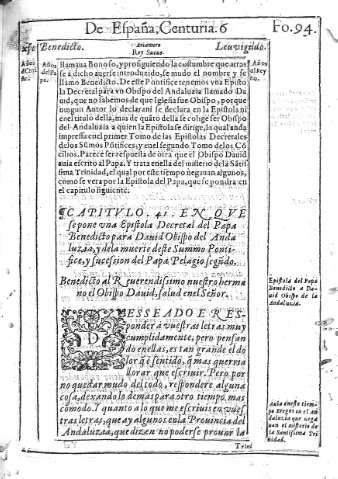 De España, Centuria. 6
Fo. 94.
Benedicto.
Ariamiro
Rey Sueuo.
Leuvigildo.
llamaua Bonoso, y prosiguiendo la costumbre que atras
se á dicho auerse introduzido, se mudo el nombre y se
llamo Benedicto. De este Pontifice tenemos vna Episto
la Decretal para vn Obispo del Andaluzia llamado Da
uid, que no sabemos de que Iglesia fue Obispo, porque
ningun Autor lo declara ni se declara en la Epistola ni
en el titulo della, mas de quāto della se colige ser Obispo
del Andaluzia a quien la Epistola se dirige, la qual anda
impressa en el primer Tomo de las Epistolas Decretales
de los Sūmos Pōtifices, y en el segundo Tomo de los Cō
cilios. Parece ser respuesta de otra que el Obispo Dauid
auia escrito al Papa. Y trata en ella del misterio de la Sātis
sima Trinidad, el qual por este tiempo negauan algunos,
como se vera por la Epistola del Papa, que se pondra en
el capitulo siguiente.
CAPITVLO. 41. EN QVE
se pone vna Epistola Decretal del Papa
Benedicto para Dauid Obispo del Anda
luzia, y de la muerte deste Summo Ponti-
fice, y sucession del Papa Pelagio segūdo.
Benedicto al Reuerendissimo nuestro herma
no el Obispo Dauid, salud en el Señor.
Epistola del Papa
Benedicto a Da
uid Obispo de la
Andaluzia.
DESSEADO E RES-
ponder a vuestras letras muy
cumplidamente, pero pensan
do en ellas, es tan grande el do
lor q̄ sentido, q̄ mas querria
llorar que escriuir. Pero por
no quedar mudo del todo, respondere alguna
cosa, dexando lo demas para otro tiempo mas
comodo. I quanto a lo que me escriuis en vues
tras letras, que ay algunos en la Prouincia del
Andaluzia, que dizen no poderse prouar la
Auia en este tiem
po Arreges en el An
daluzia que nega
uan el misterio de
la Santissima Tri
nidad.